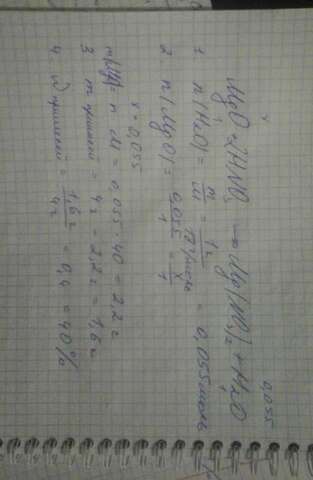 x 0,055
MgO + 2HNO₃ → Mg(NO₃)₂ + H₂O
1 1
1 n(H₂O) = m/M = 1г/18г/моль = 0,055 моль
2 n(MgO) = 0,055/1 = x/1
x = 0,055
m(MgO) = n M = 0,055 · 40 = 2,2 г
3 m примесей = 4г - 2,2г = 1,6г
4 W примесей = 1,6г/4г = 0,4 = 40%